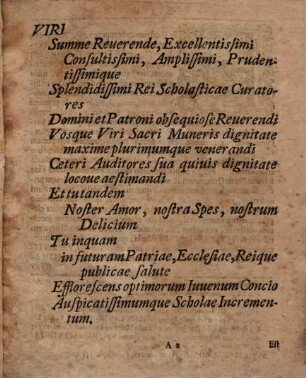 VIRI
Summe Reuerende, Excellentissimi
Consultissimi, Amplissimi, Pruden-
tissimique
Splendidissimi Rei Scholasticae Curato-
res
Domini et Patroni obsequiose Reuerendi
Vosque Viri Sacri Muneris dignitate
maxime plurimumque venerandi
Ceteri Auditores sua quiuis dignitate
locoue aestimandi
Et tu tandem
Noster Amor, nostra Spes, nostrum
Delicium
Tu inquam
in futuram Patriae, Ecclesiae, Reique
publicae salute
Efflorescens optimorum Iuuenum Concio
Auspicatissimumque Scholae Incremen-
tum.
A 2
Est